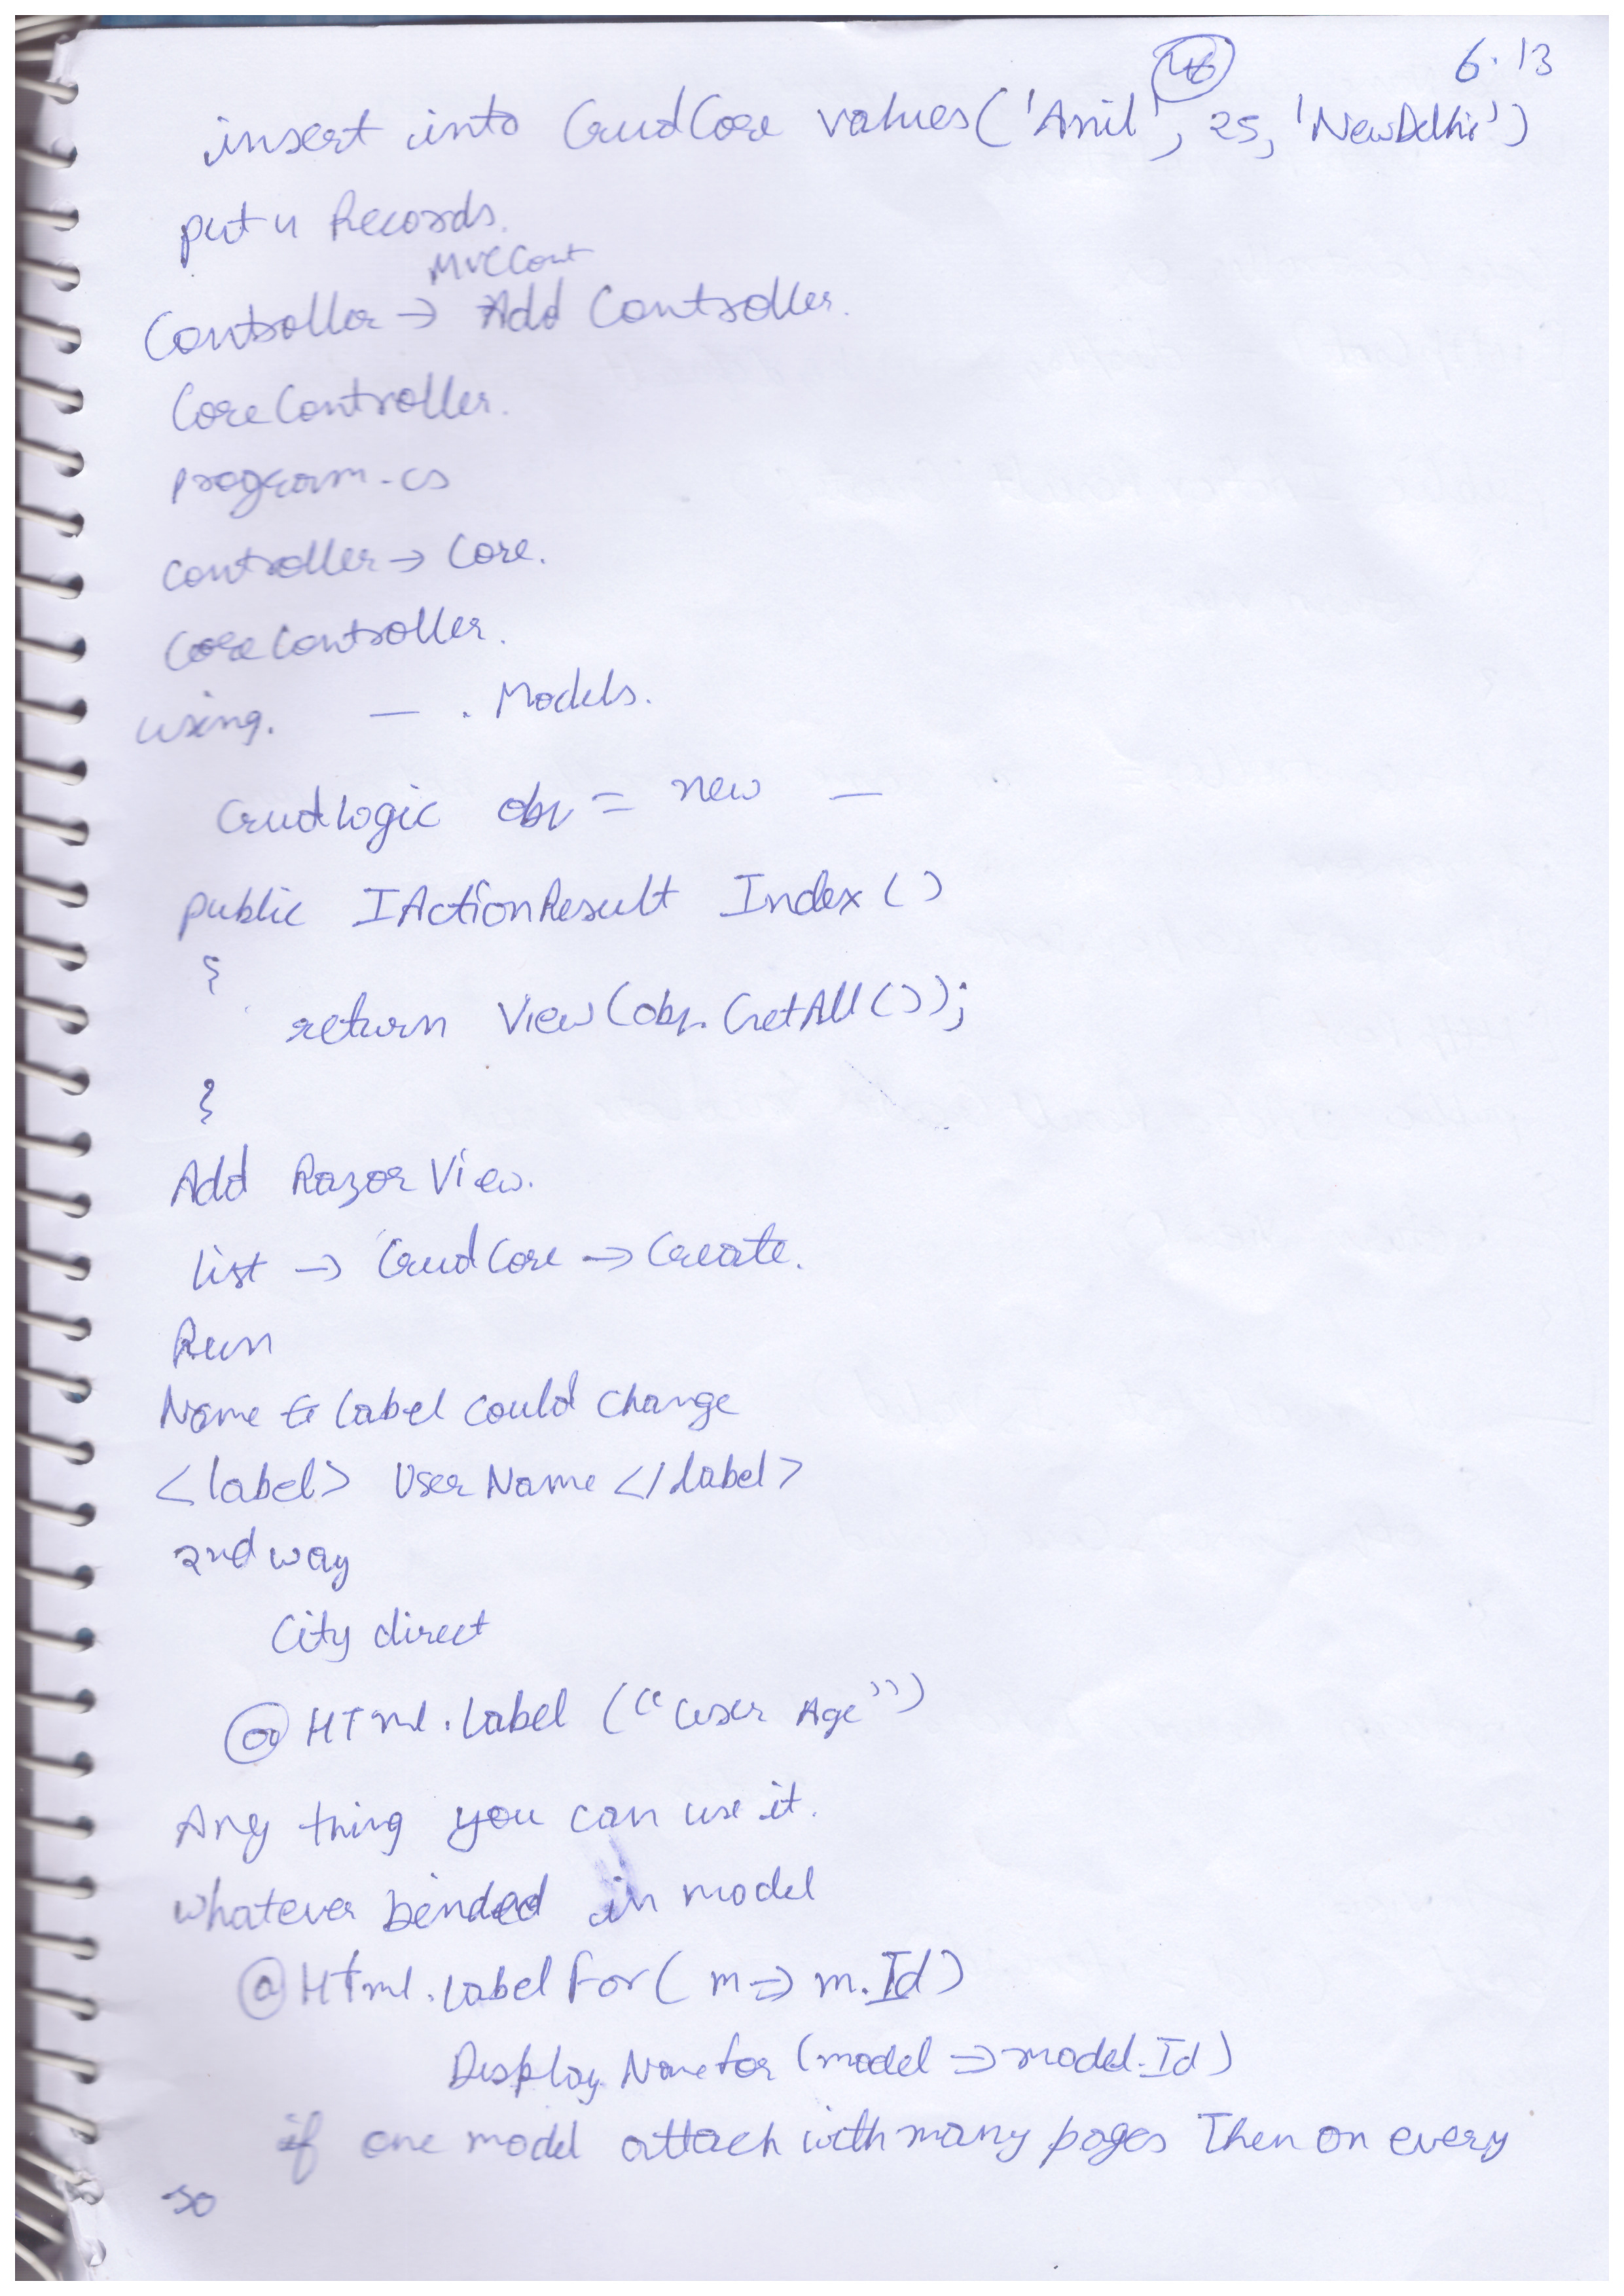 46
6.13
insert into CrudCore values('Anil', 25, 'NewDelhi')
put 4 Records.
MVCCont
Controller → Add Controller.
CoreController.
program.cs
controller → Core.
CoreController.
using. — . Models.
CrudLogic obj = new —
public IActionResult Index()
{
return View(obj.GetAll());
}
Add Razor View.
list → CrudCore → Create.
Run
Name Label could change
<label> User Name </label>
2nd way
City direct
@ HTml.Label ("User Age")
Any thing you can use it.
whatever bended in model
@ Html.Label For( m => m.Id)
Display Name for (model => model.Id)
if one model attach with many pages Then on every
so